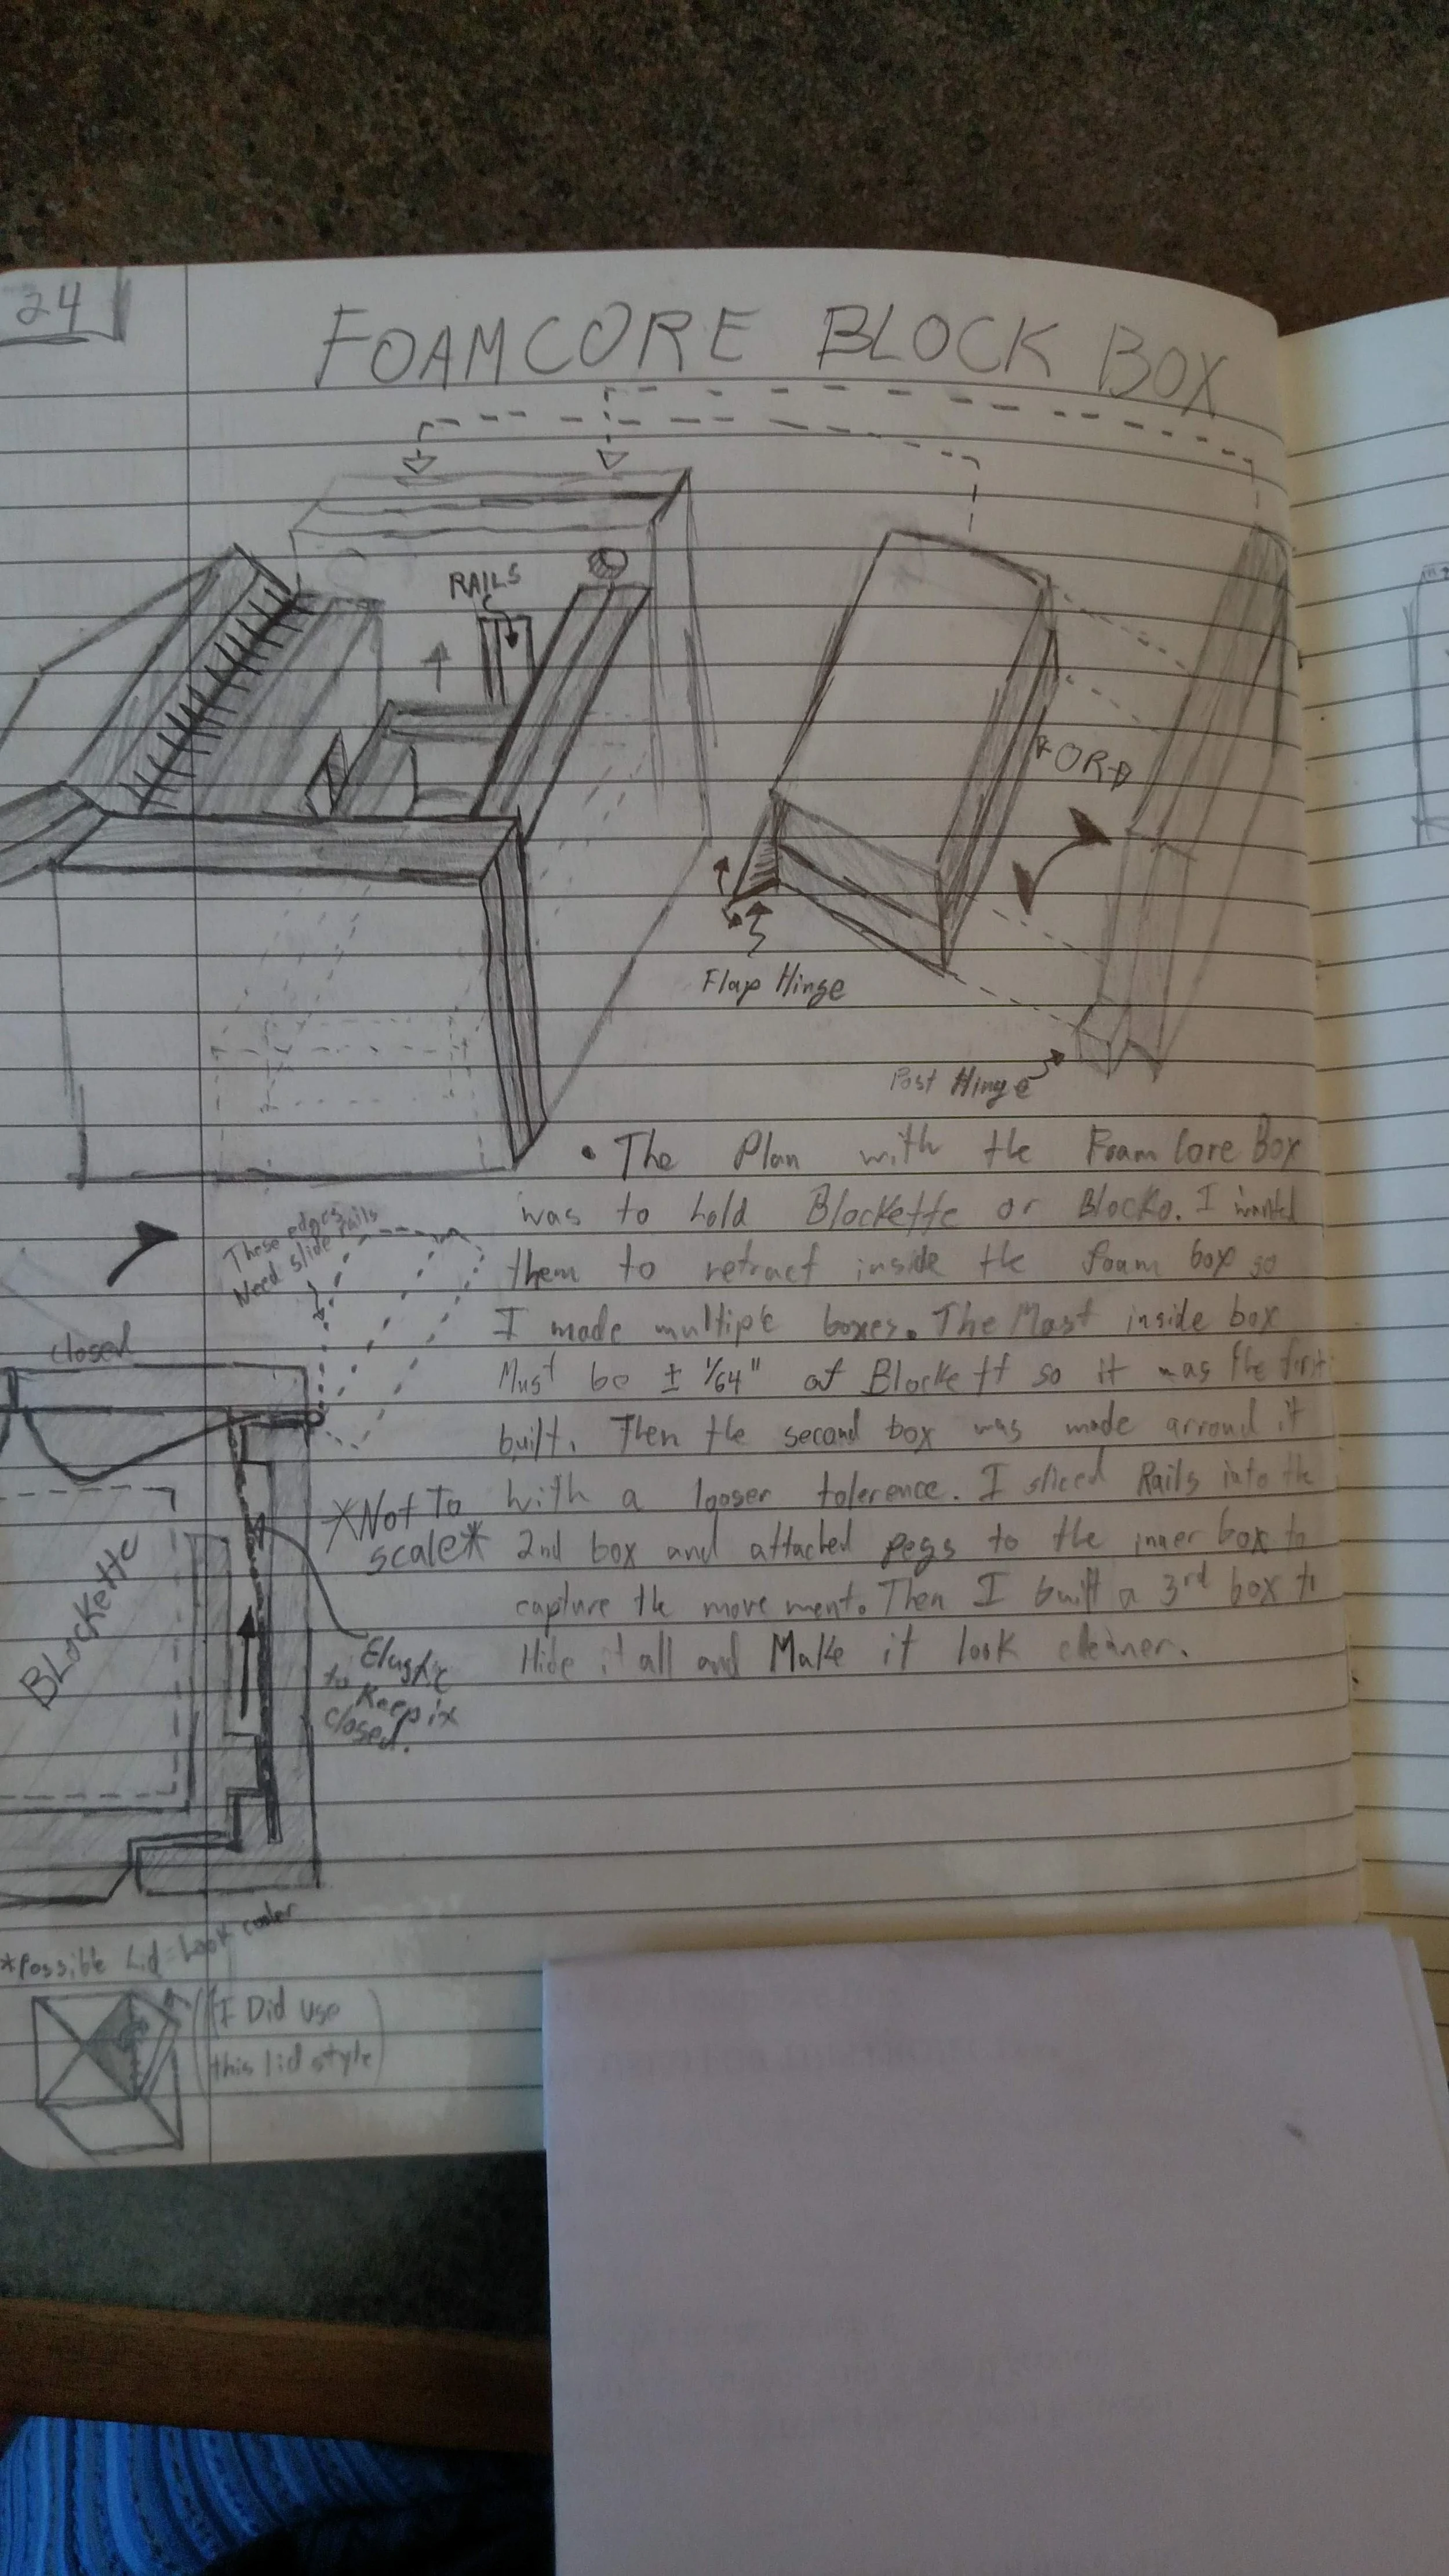 24
FOAMCORE BLOCK BOX
RAILS
FOR
Flap Hinge
Post Hinge
• The Plan with the Foam Core Box
was to hold Blockette or Blocko. I wanted
them to retract inside the foam box so
I made multiple boxes. The Most inside box
Must be ± 1/64" of Blockett so it was the first
built. Then the second box was made arround it
with a looser tolerence. I sliced Rails into the
2nd box and attached pegs to the inner box to
capture the movement. Then I built a 3rd box to
Hide it all and Make it look cleaner.
These edges
Need slide rails
closed
*Not To
scale*
Blockette
Elastic
to Keep it
closed.
*Possible Lid Look cooler
(I Did use
this lid style)